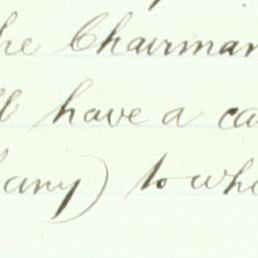 he Chairman
ll have a ca
any) to whe